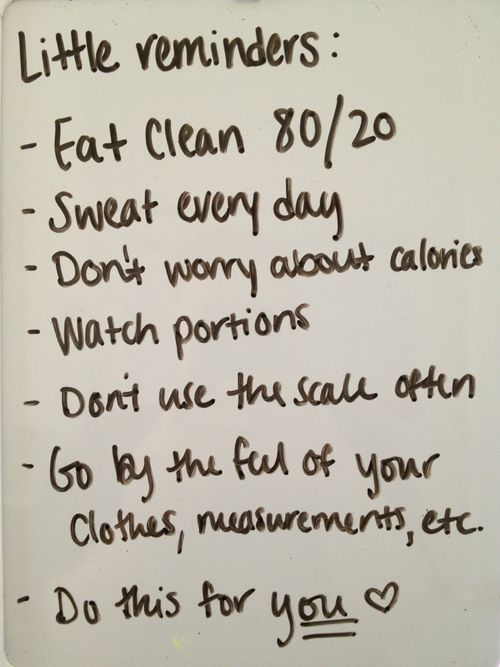 Little reminders:
- Eat Clean 80/20
- Sweat every day
- Don't worry about calories
- Watch portions
- Don't use the scale often
- Go by the feel of your
Clothes, measurements, etc.
- Do this for you ♡